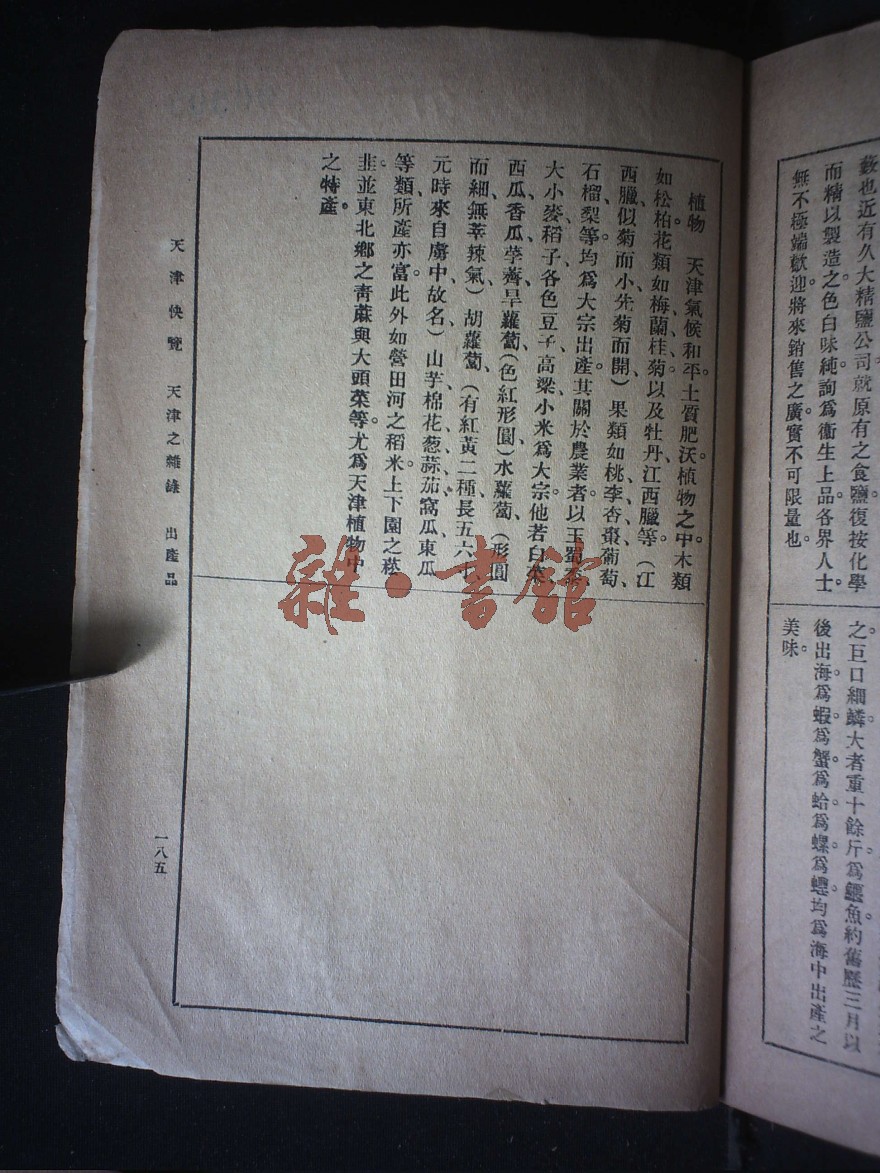 藪也近有久大精鹽公司就原有之食鹽。復按化學
而精以製造之。色白味純。詢為衞生上品。各界人士。
無不極端歡迎。將來銷售之廣。實不可限量也。
之巨口細鱗。大者重十餘斤。為魚。約舊歷三月以
後出海。為蝦。為蟹。為蛤。為螺。為蟶。均為海中出產之
美味。
植物　天津氣候和平。土質肥沃。植物之中。木類
如松柏。花類如梅、蘭、桂、菊以及牡丹、江西臘等（江
西臘似菊而小先菊而開）果類如桃、李、杏、棗、葡萄、
石榴、梨等。均為大宗出產。其關於農業者。以玉蜀黍、
大小麥、稻子、各色豆子、高粱、小米為大宗。他若白菜、
西瓜、香瓜、荸薺、旱蘿蔔（色紅形圓）水蘿蔔、（形圓
而細無莘辣氣）胡蘿蔔、（有紅黃二種長五六寸
元時來自虜中故名）山芋、棉花、葱、蒜、茄、窩瓜、東瓜
等類。所產亦富。此外如營田河之稻米。上下園之菘
韭。並東北鄉之青蔴與大頭菜等。尤為天津植物中
之特產。
天津快覽　天津之雜錄　出產品
一八五
雜·書館